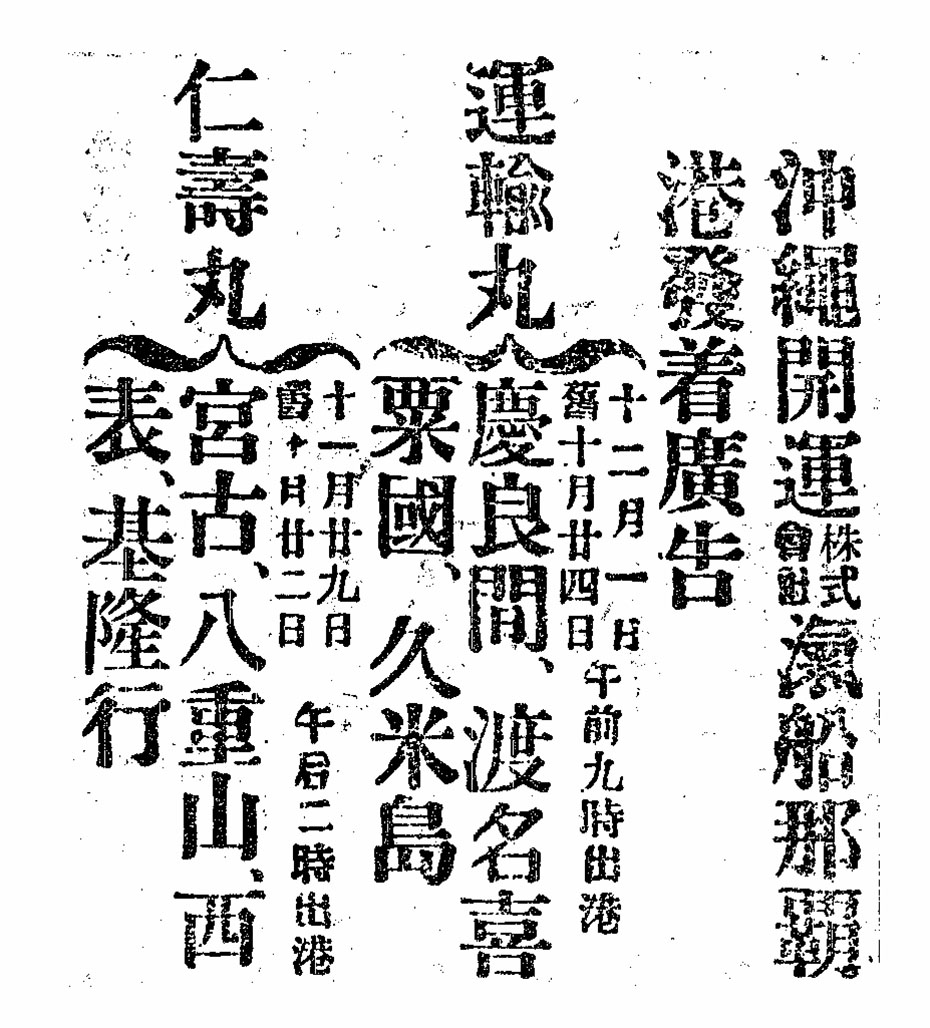 沖繩開運株式會社滊船那覇
港發着廣告
運輸丸
十二月一日
舊十月廿四日
午前九時出港
慶良間、渡名喜
粟國、久米島
仁壽丸
十一月廿九日
舊十月廿二日
午后二時出港
宮古、八重山、西
表、基隆行